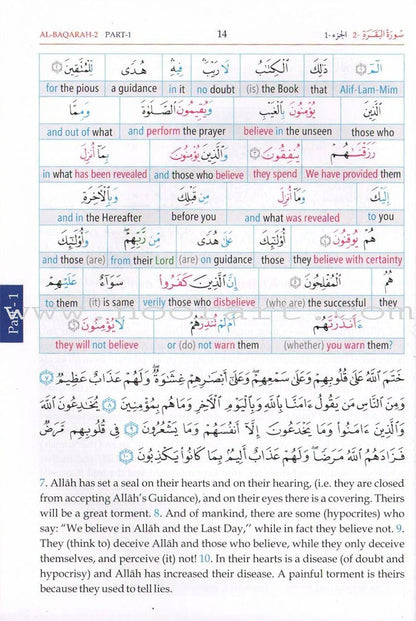 AL-BAQARAH-2 PART-1 14 سُورَةُ البَقَرَةِ -2 الجزء -1
الٓمٓ ذَٰلِكَ الْكِتَٰبُ لَا رَيْبَ فِيهِ هُدًى لِّلْمُتَّقِينَ
for the pious a guidance in it no doubt (is) the Book that Alif-Lam-Mim
الَّذِينَ يُؤْمِنُونَ بِالْغَيْبِ وَيُقِيمُونَ الصَّلَوٰةَ وَمِمَّا
and out of what and perform the prayer believe in the unseen those who
رَزَقْنَٰهُمْ يُنفِقُونَ وَالَّذِينَ يُؤْمِنُونَ بِمَا أُنزِلَ
in what has been revealed and those who believe they spend We have provided them
إِلَيْكَ وَمَا أُنزِلَ مِن قَبْلِكَ وَبِالْآخِرَةِ
and in the Hereafter before you and what was revealed to you
هُمْ يُوقِنُونَ أُوْلَٰٓئِكَ عَلَىٰ هُدًى مِّن رَّبِّهِمْ وَأُوْلَٰٓئِكَ
and those (are) from their Lord (are) on guidance those they believe with certainty
هُمُ الْمُفْلِحُونَ إِنَّ الَّذِينَ كَفَرُوا سَوَآءٌ عَلَيْهِمْ
to them (it) is same verily those who disbelieve (who are) the successful they
ءَأَنذَرْتَهُمْ أَمْ لَمْ تُنذِرْهُمْ لَا يُؤْمِنُونَ
they will not believe or (do) not warn them (whether) you warn them?
Part - 1
خَتَمَ اللَّهُ عَلَىٰ قُلُوبِهِمْ وَعَلَىٰ سَمْعِهِمْ وَعَلَىٰ أَبْصَٰرِهِمْ غِشَٰوَةٌ وَلَهُمْ عَذَابٌ عَظِيمٌ ٧
وَمِنَ النَّاسِ مَن يَقُولُ ءَامَنَّا بِاللَّهِ وَبِالْيَوْمِ الْآخِرِ وَمَا هُم بِمُؤْمِنِينَ ٨ يُخَٰدِعُونَ اللَّهَ
وَالَّذِينَ ءَامَنُوا وَمَا يَخْدَعُونَ إِلَّآ أَنفُسَهُمْ وَمَا يَشْعُرُونَ ٩ فِي قُلُوبِهِم مَّرَضٌ
فَزَادَهُمُ اللَّهُ مَرَضًا وَلَهُمْ عَذَابٌ أَلِيمٌ بِمَا كَانُوا يَكْذِبُونَ ١٠
7. Allâh has set a seal on their hearts and on their hearing, (i.e. they are closed
from accepting Allâh's Guidance), and on their eyes there is a covering. Theirs
will be a great torment. 8. And of mankind, there are some (hypocrites) who
say: "We believe in Allâh and the Last Day," while in fact they believe not. 9.
They (think to) deceive Allâh and those who believe, while they only deceive
themselves, and perceive (it) not! 10. In their hearts is a disease (of doubt and
hypocrisy) and Allâh has increased their disease. A painful torment is theirs
because they used to tell lies.